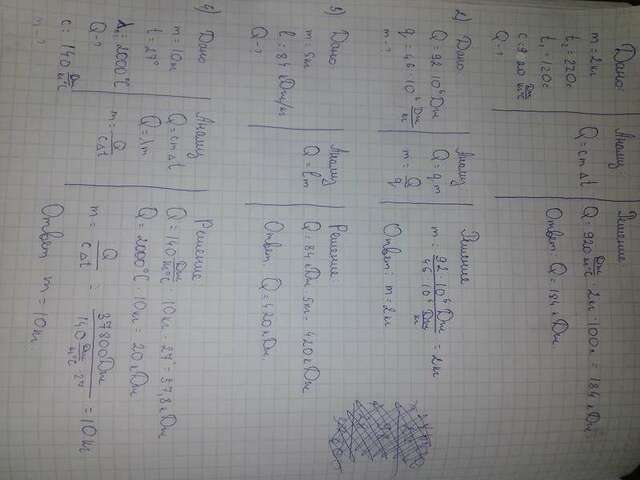 Дано:
m = 2 кг
t₂ = 220с
t₁ = 120с
c = 920 Дж/кг°С
Q - ?
Анализ
Q = cm Δt
Решение
Q = 920 Дж/кг°С · 2кг · 100с = 184 кДж
Ответ: Q = 184 кДж.
2) Дано
Q = 92 · 10⁶ Дж
q = 46 · 10⁶ Дж/кг
m - ?
Анализ
Q = qm
m = Q/q
Решение
m = 92 · 10⁶ Дж / 46 · 10⁶ Дж/кг = 2кг
Ответ: m = 2кг
3) Дано
m = 5кг
l = 84 кДж/кг
Q - ?
Анализ
Q = lm
Решение:
Q = 84 кДж · 5кг = 420 кДж
Ответ: Q = 420 кДж.
4) Дано
m = 10кг
t = 27°
= 2000°С
Q - ?
c = 140 Дж/кг°С
m - ?
Анализ
Q = cm Δt
Q = λm
m = Q/cΔt
Решение
Q = 140 Дж/кг°С · 10кг · 27° = 37,8 кДж
Q = 2000°С · 10кг = 20 кДж
m = Q/cΔt = 37800Дж / 140 Дж/кг°С · 27 = 10кг
Ответ m = 10кг